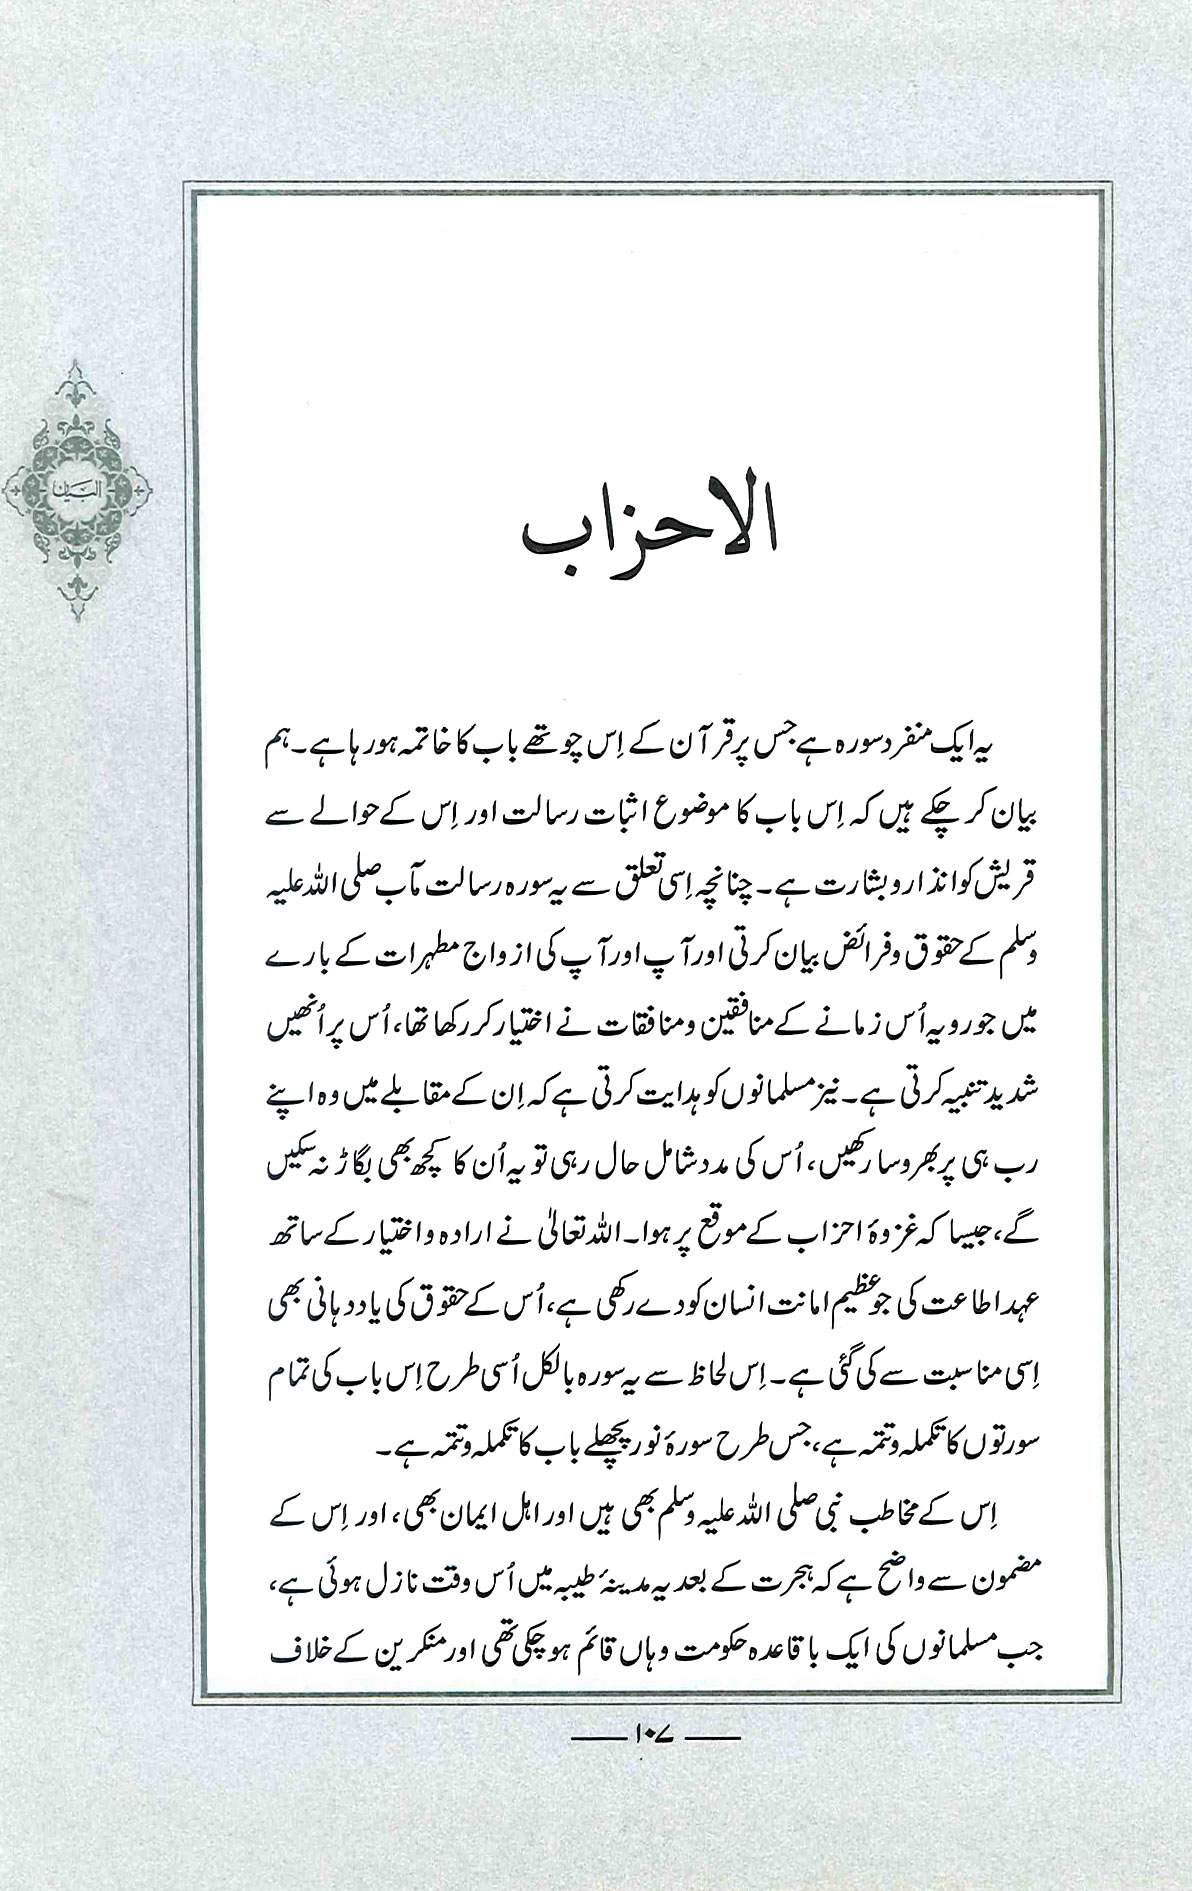 البیان
الاحزاب
یہ ایک منفرد سورہ ہے جس پر قرآن کے اِس چوتھے باب کا خاتمہ ہو رہا ہے۔ ہم
بیان کر چکے ہیں کہ اِس باب کا موضوع اثبات رسالت اور اِس کے حوالے سے
قریش کو انذار و بشارت ہے۔ چنانچہ اِسی تعلق سے یہ سورہ رسالت مآب صلی اللہ علیہ
وسلم کے حقوق و فرائض بیان کرتی اور آپ اور آپ کی ازواج مطہرات کے بارے
میں جو رویہ اُس زمانے کے منافقین و منافقات نے اختیار کر رکھا تھا، اُس پر اُنھیں
شدید تنبیہ کرتی ہے۔ نیز مسلمانوں کو ہدایت کرتی ہے کہ اِن کے مقابلے میں وہ اپنے
رب ہی پر بھروسا رکھیں، اُس کی مدد شامل حال رہی تو یہ اُن کا کچھ بھی بگاڑ نہ سکیں
گے، جیسا کہ غزوۂ احزاب کے موقع پر ہوا۔ اللہ تعالیٰ نے ارادہ و اختیار کے ساتھ
عہد اطاعت کی جو عظیم امانت انسان کو دے رکھی ہے، اُس کے حقوق کی یاددہانی بھی
اِسی مناسبت سے کی گئی ہے۔ اِس لحاظ سے یہ سورہ بالکل اُسی طرح اِس باب کی تمام
سورتوں کا تکملہ و تتمہ ہے، جس طرح سورۂ نور پچھلے باب کا تکملہ و تتمہ ہے۔
اِس کے مخاطب نبی صلی اللہ علیہ وسلم بھی ہیں اور اہل ایمان بھی، اور اِس کے
مضمون سے واضح ہے کہ ہجرت کے بعد یہ مدینۂ طیبہ میں اُس وقت نازل ہوئی ہے،
جب مسلمانوں کی ایک باقاعدہ حکومت وہاں قائم ہو چکی تھی اور منکرین کے خلاف
۱۰۷